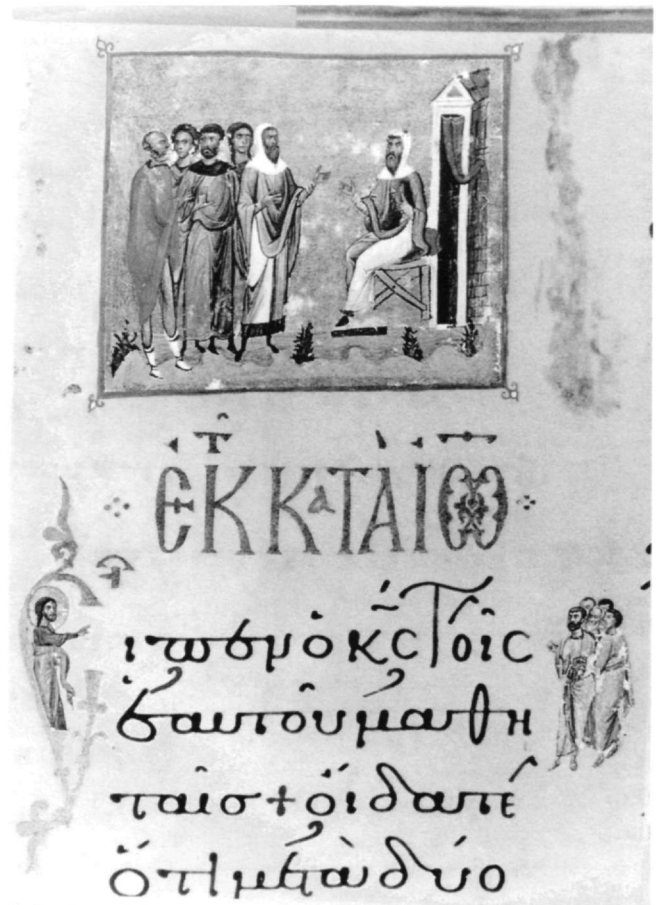 ἐΚ Τ ΚαΤὰ Ἰω
Εἶπεν ὁ κ̅ς̅ τοῖς
ἑαυτοῦ μαθη
ταῖσ + οἴδατε
ὅτι μετὰ δύο